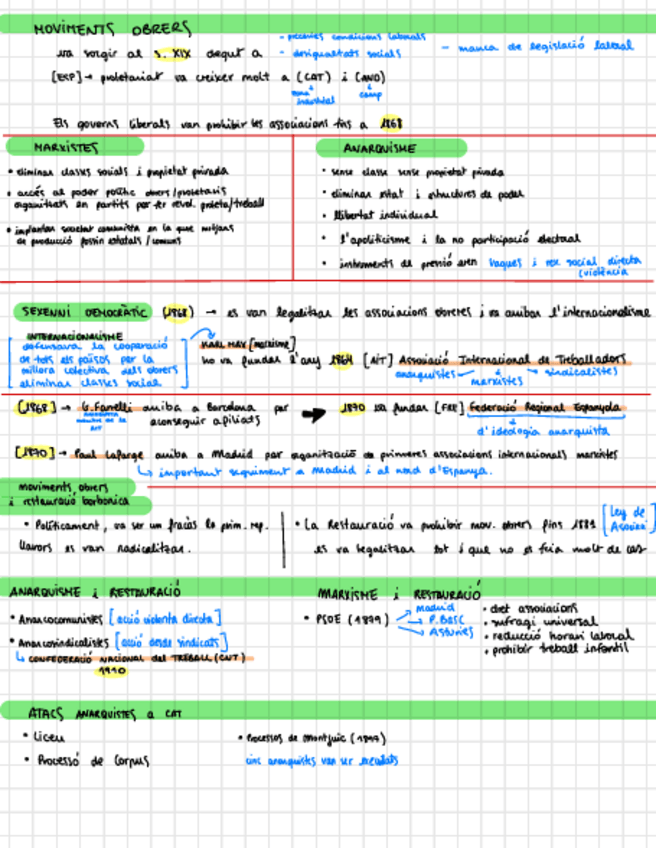 MOVIMENTS OBRERS
va sorgir al s. XIX degut a
- precàries condicions laborals
- desigualtats socials
- manca de legislació laboral
[ESP] → proletariat va créixer molt a (CAT) i (AND)
zona industrial
camp
Els governs liberals van prohibir les associacions fins a 1868
MARXISTES
• eliminar classes socials i propietat privada
• accés al poder polític obrers/proletaris
organitzats en partits per fer revol. proleta/treball
• implantar societat comunista en la que mitjans
de producció fossin estatals / comuns
ANARQUISME
• sense classe sense propietat privada
• eliminar estat i estructures de poder
• llibertat individual
• l'apoliticisme i la no participació electoral
• instruments de pressió eren vagues i rev social directa
(violència
SEXENNI DEMOCRÀTIC (1868) → es van legalitzar les associacions obreres i va arribar l'internacionalisme
INTERNACIONALISME
defensava la cooperació
de tots els països per la
millora colectiva dels obrers
eliminar classes social
KARL MAX [marxisme]
ho va fundar l'any 1864 [AIT] Associació Internacional de Treballadors
anarquistes
marxistes
sindicalistes
[1868] → G. Fanelli arriba a Barcelona per
aconseguir afiliats
membre de la
AIT
1870 va fundar [FRE] Federació Regional Espanyola
d'ideologia anarquista
[1870] → Paul Lafarge arriba a Madrid per organització de primeres associacions internacionals marxistes
important seguiment a Madrid i al nord d'Espanya.
moviments obrers
i restauració borbònica
• Políticament, va ser un fracàs la prim. rep.
llavors es van radicalitzar.
• La Restauració va prohibir mov. obrers fins 1881
[Ley de
es va legalitzar tot i que no es feia molt de cas
ANARQUISME i RESTAURACIÓ
• Anarcocomunistes [acció violenta directa]
• Anarcosindicalistes [acció desde sindicats]
CONFEDERACIÓ NACIONAL del TREBALL (CNT)
1910
MARXISME i RESTAURACIÓ
• PSOE (1879)
madrid
P. BASC
Astúries
• dret associacions
• sufragi universal
• reducció horari laboral
• prohibir treball infantil
ATACS ANARQUISTES a CAT
• Liceu
• Processó de Corpus
• Processos de Montjuïc (1897)
cinc anarquistes van ser executats